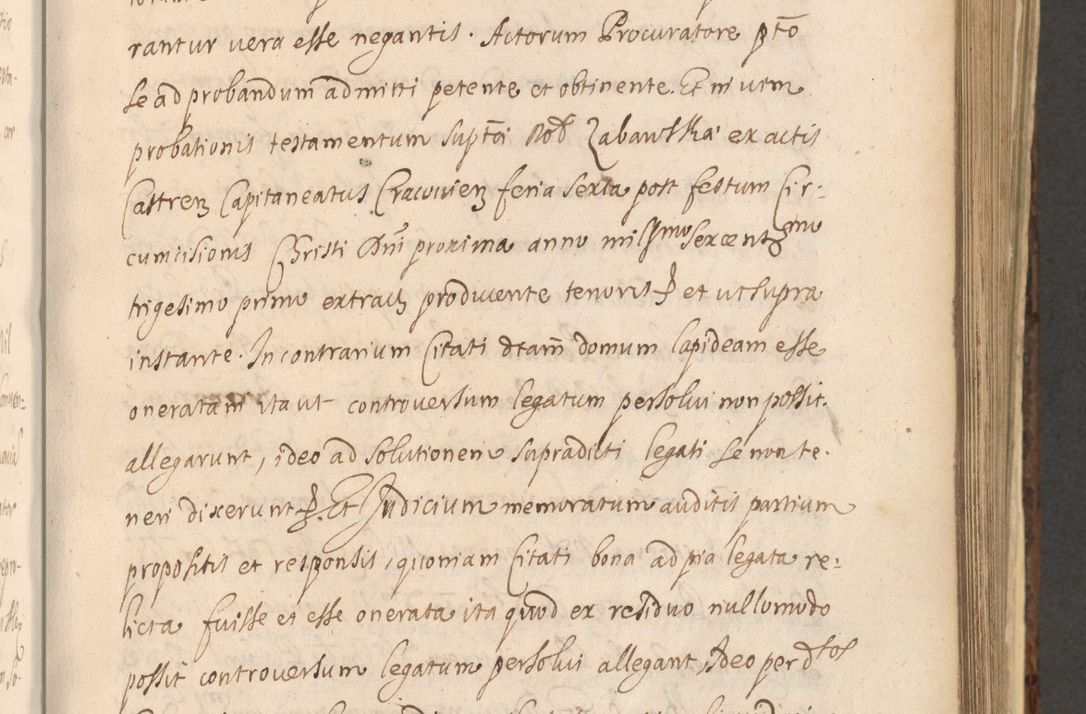 rantur vera esse negantis. Actorum Procuratore pto
se ad probandum admitti petente et obtinente. Et in vim
probationis testamentum supta Nob Zabawska ex actis
Castren Capitaneatus Cracovien feria sexta post festum Cir:
cumcisionis Christi Dni proxima anno millmo sexcentmo
trigesimo primo extract producente tenoris et ut supra
instante. In contrarium Citati dtam domum lapideam esse
oneratam ita ut controversum legatum persolvi non possit.
allegarunt, ideo ad solutionem supradicti legati se non te.
neri dixerunt. Et Judicium memoratum auditis partium
propositis et responsis, quoniam Citati bona ad pia legata re:
licta fuisse et esse onerata ita quod ex residuo nullomodo
possit controversum legatum persolvi allegant, Ideo per dtos